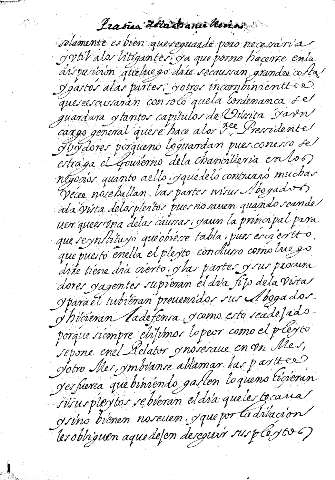 solamente es bien que se guarde pero necesaria
y util a los litigantes, ya que por no hacerse en la
disposicion que luego dire se causan grandes costas
y gastos a las partes, y otros inconbinientes
que se escusaran con solo que la hordenanca se
guardara y tantos capitulos de Visita y aun
cargo general que se hace a los Presidente
y Oydores porque no lo guardan pues con esso se
estraga el Govierno de la Chancilleria en los
negocios quanto a ello, y que de lo contrario muchas
veces no se hallan las partes ni sus Abogados
a la vista de los pleytos pues no saven quando se an de
ver que es una de las causas, y aun la principal para
que se ynstituyo que obiese tabla, pues es cierto
que puesto en ella el pleyto concluso como luego
dire tiene dia cierto, y las partes y sus procura
dores y agentes supieran el dia fijo de la Vista
y para el tubieran prevenidos sus Abogados
y hicieran la defensa, y como esto se a dejado
porque siempre elijimos lo peor como el pleyto
se pone en el Relator y no se ve en un Mes,
y otro Mes, y mbianse a llamar las partes
y es fuerca que biniendo gasten lo que no hicieran
si sus pleytos se bieran el dia que les tocava
y si no bienen no se ven, y que por la dilacion
les obliguen a que dejen de seguir sus pleytos